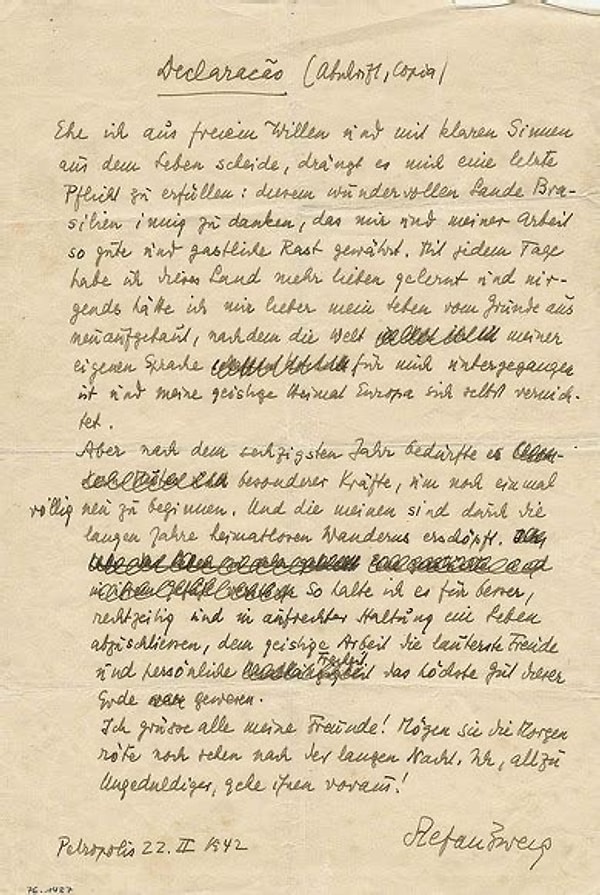 Declaracão (Abschrift, Copia)
Ehe ich aus freiem Willen und mit klaren Sinnen
aus dem Leben scheide, drängt es mich eine letzte
Pflicht zu erfüllen: diesem wundervollen Lande Bra-
silien innig zu danken, das mir und meiner Arbeit
so gute und gastliche Rast gewährt. Mit jedem Tage
habe ich dieses Land mehr lieben gelernt und nir-
gends hätte ich mir lieber mein Leben vom Grunde aus
neu aufgebaut, nachdem die Welt meiner
eigenen Sprache für mich untergegangen
ist und meine geistige Heimat Europa sich selbst vernich-
tet.
Aber nach dem sechzigsten Jahr bedürfte es
besonderer Kräfte, um noch einmal
völlig neu zu beginnen. Und die meinen sind durch die
langen Jahre heimatlosen Wanderns erschöpft.
So halte ich es für besser,
rechtzeitig und in aufrechter Haltung ein Leben
abzuschliessen, dem geistige Arbeit die lauterste Freude
und persönliche Freiheit das höchste Gut dieser
Erde gewesen.
Ich grüsse alle meine Freunde! Mögen sie die Morgen
röte noch sehen nach der langen Nacht. Ich, allzu
Ungeduldiger, gehe ihnen voraus!
Stefan Zweig
Petropolis 22. II 1942
76.1437